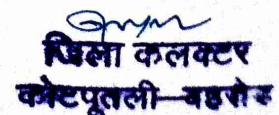 जिला कलक्टर
कोटपूतली-बहरोड